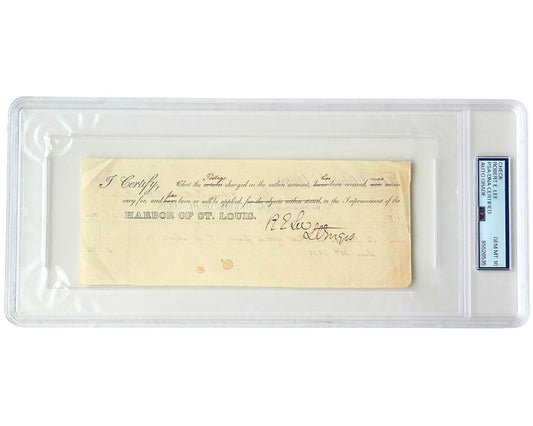 Postage has was
I Certify, That the articles charged in the within account, have been received, were neces-
sary for, and have been or will be applied, for the objects within stated, to the Improvement of the
HARBOR OF ST. LOUIS.
R E Lee
CHECK
ROBERT E. LEE
PSA/DNA CERTIFIED
AUTO GRADE
GEM MT 10
85526535